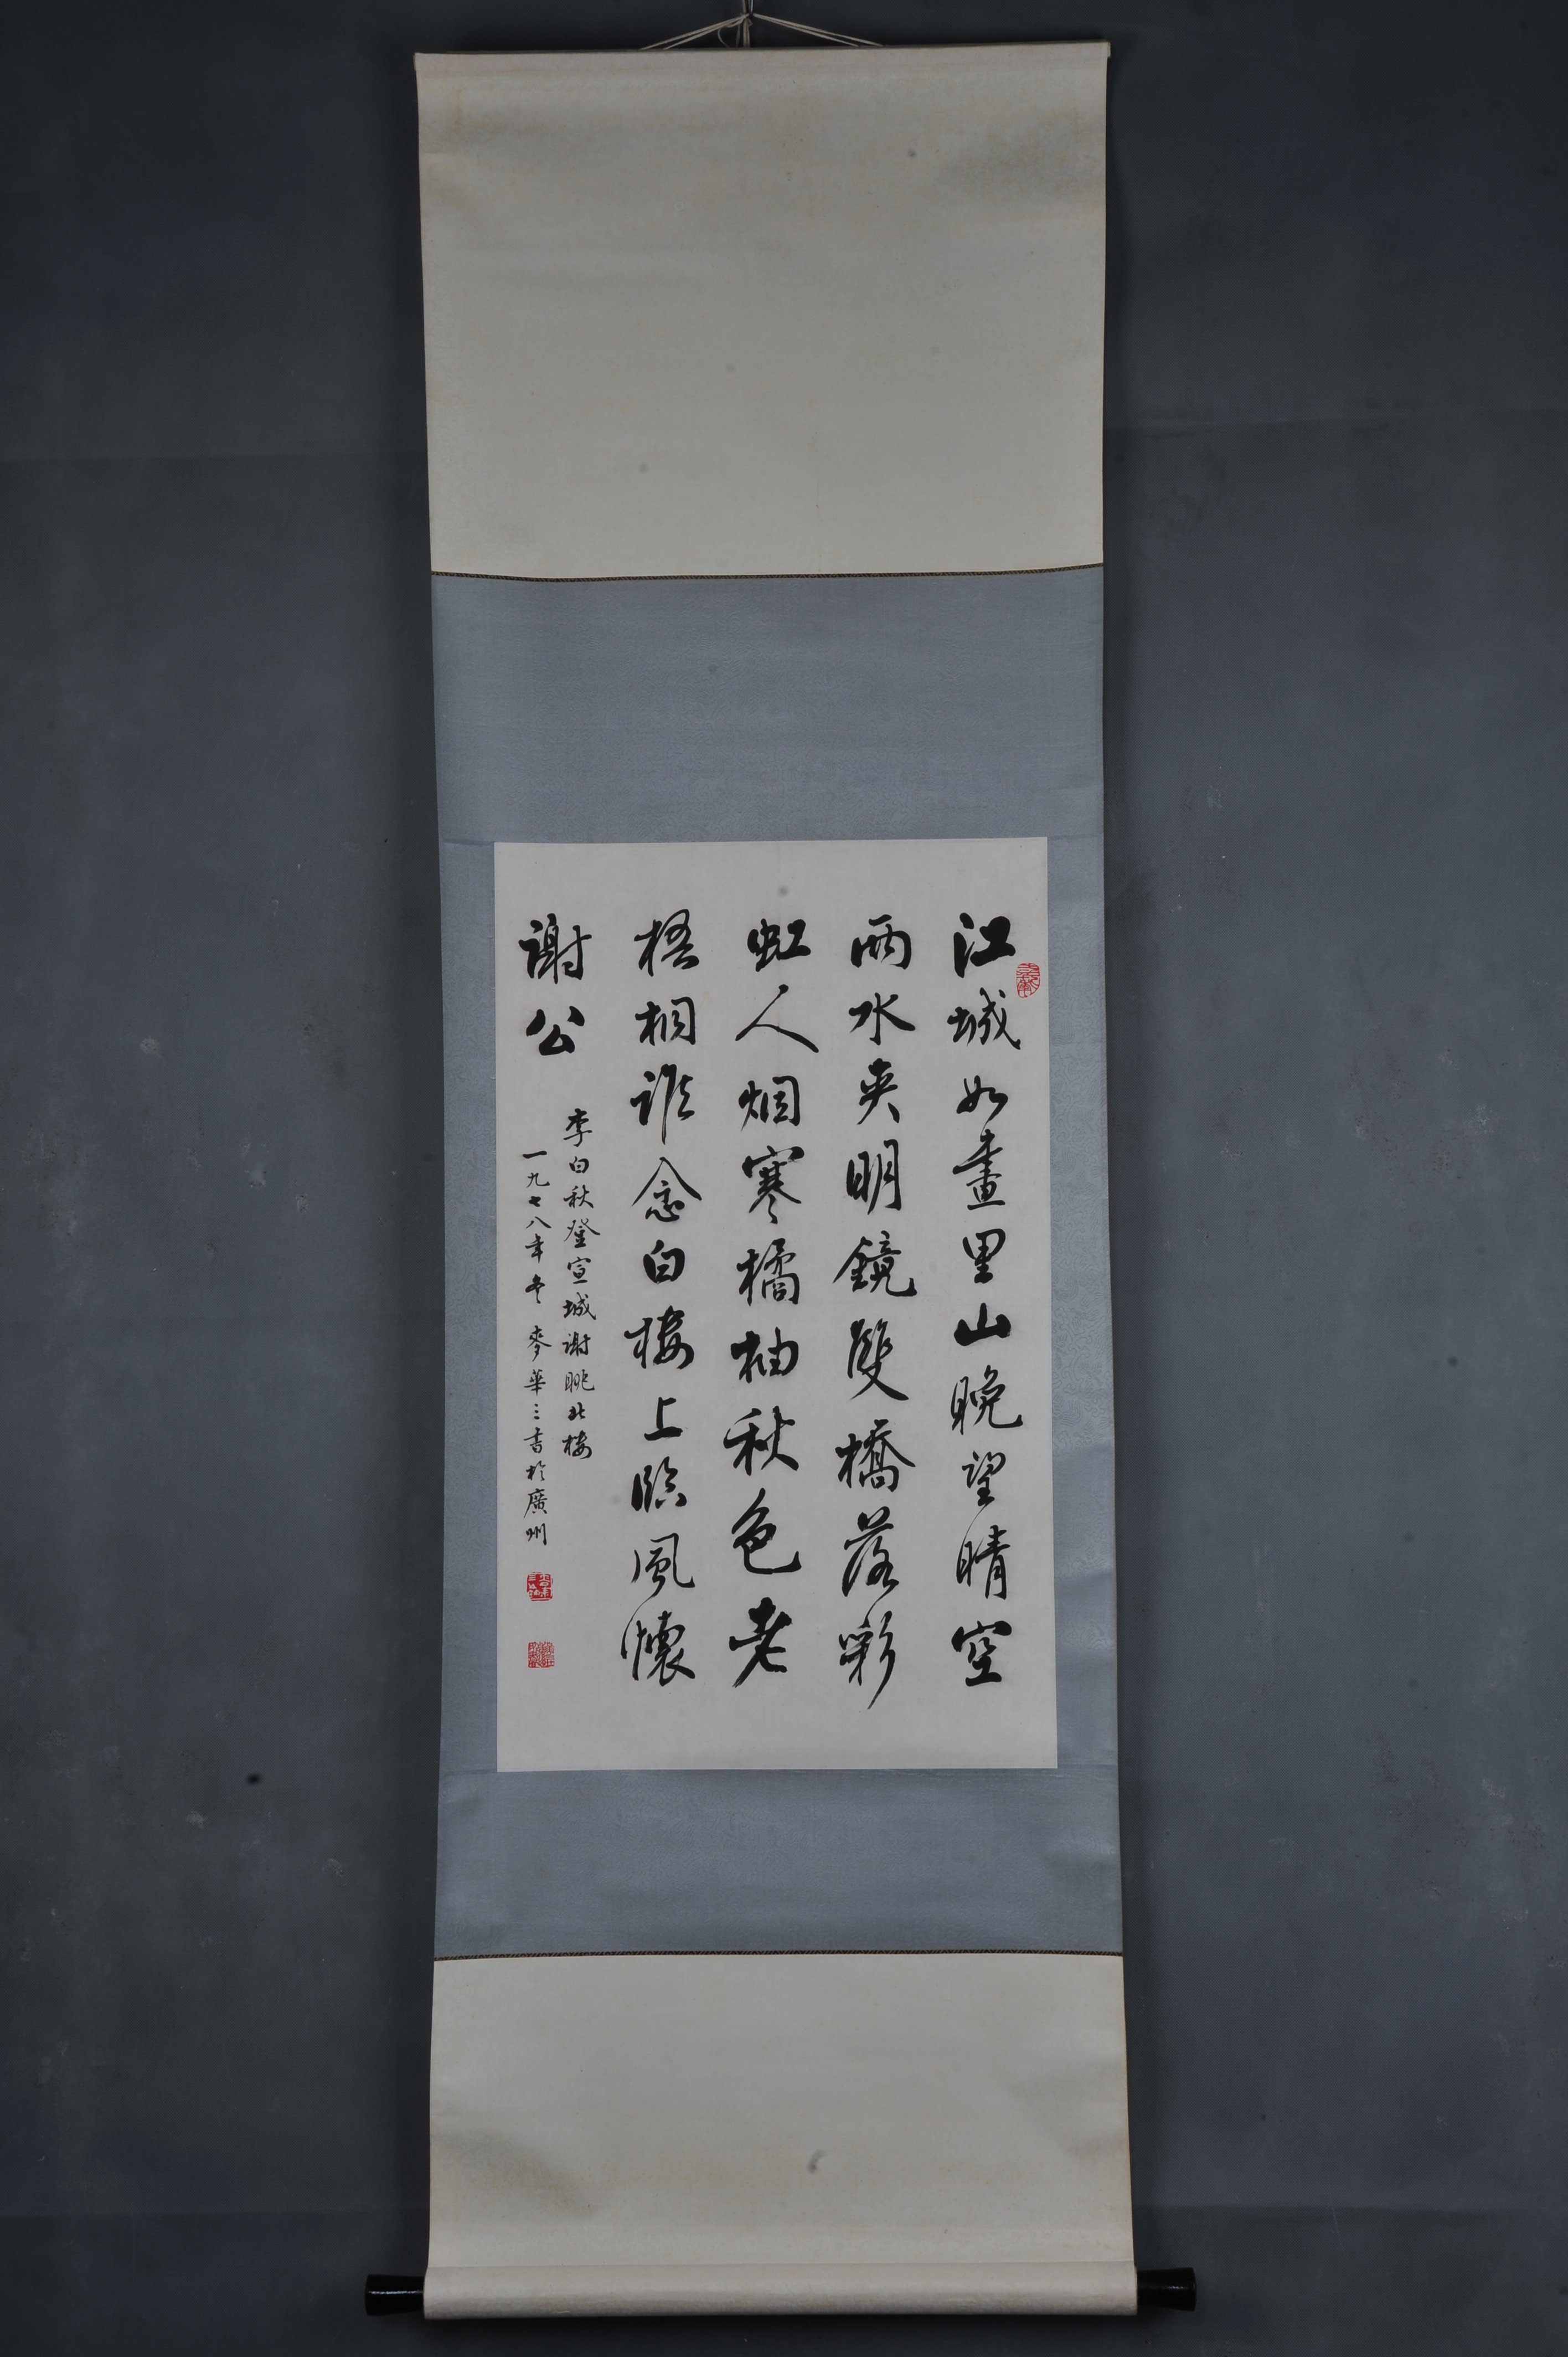 江城如畫里山晚望晴空
兩水夾明鏡雙橋落彩
虹人烟寒橘柚秋色老
梧桐誰念白樓上臨風懷
謝公
李白秋登宣城謝眺北樓
一九七八年冬 麥華三書於廣州